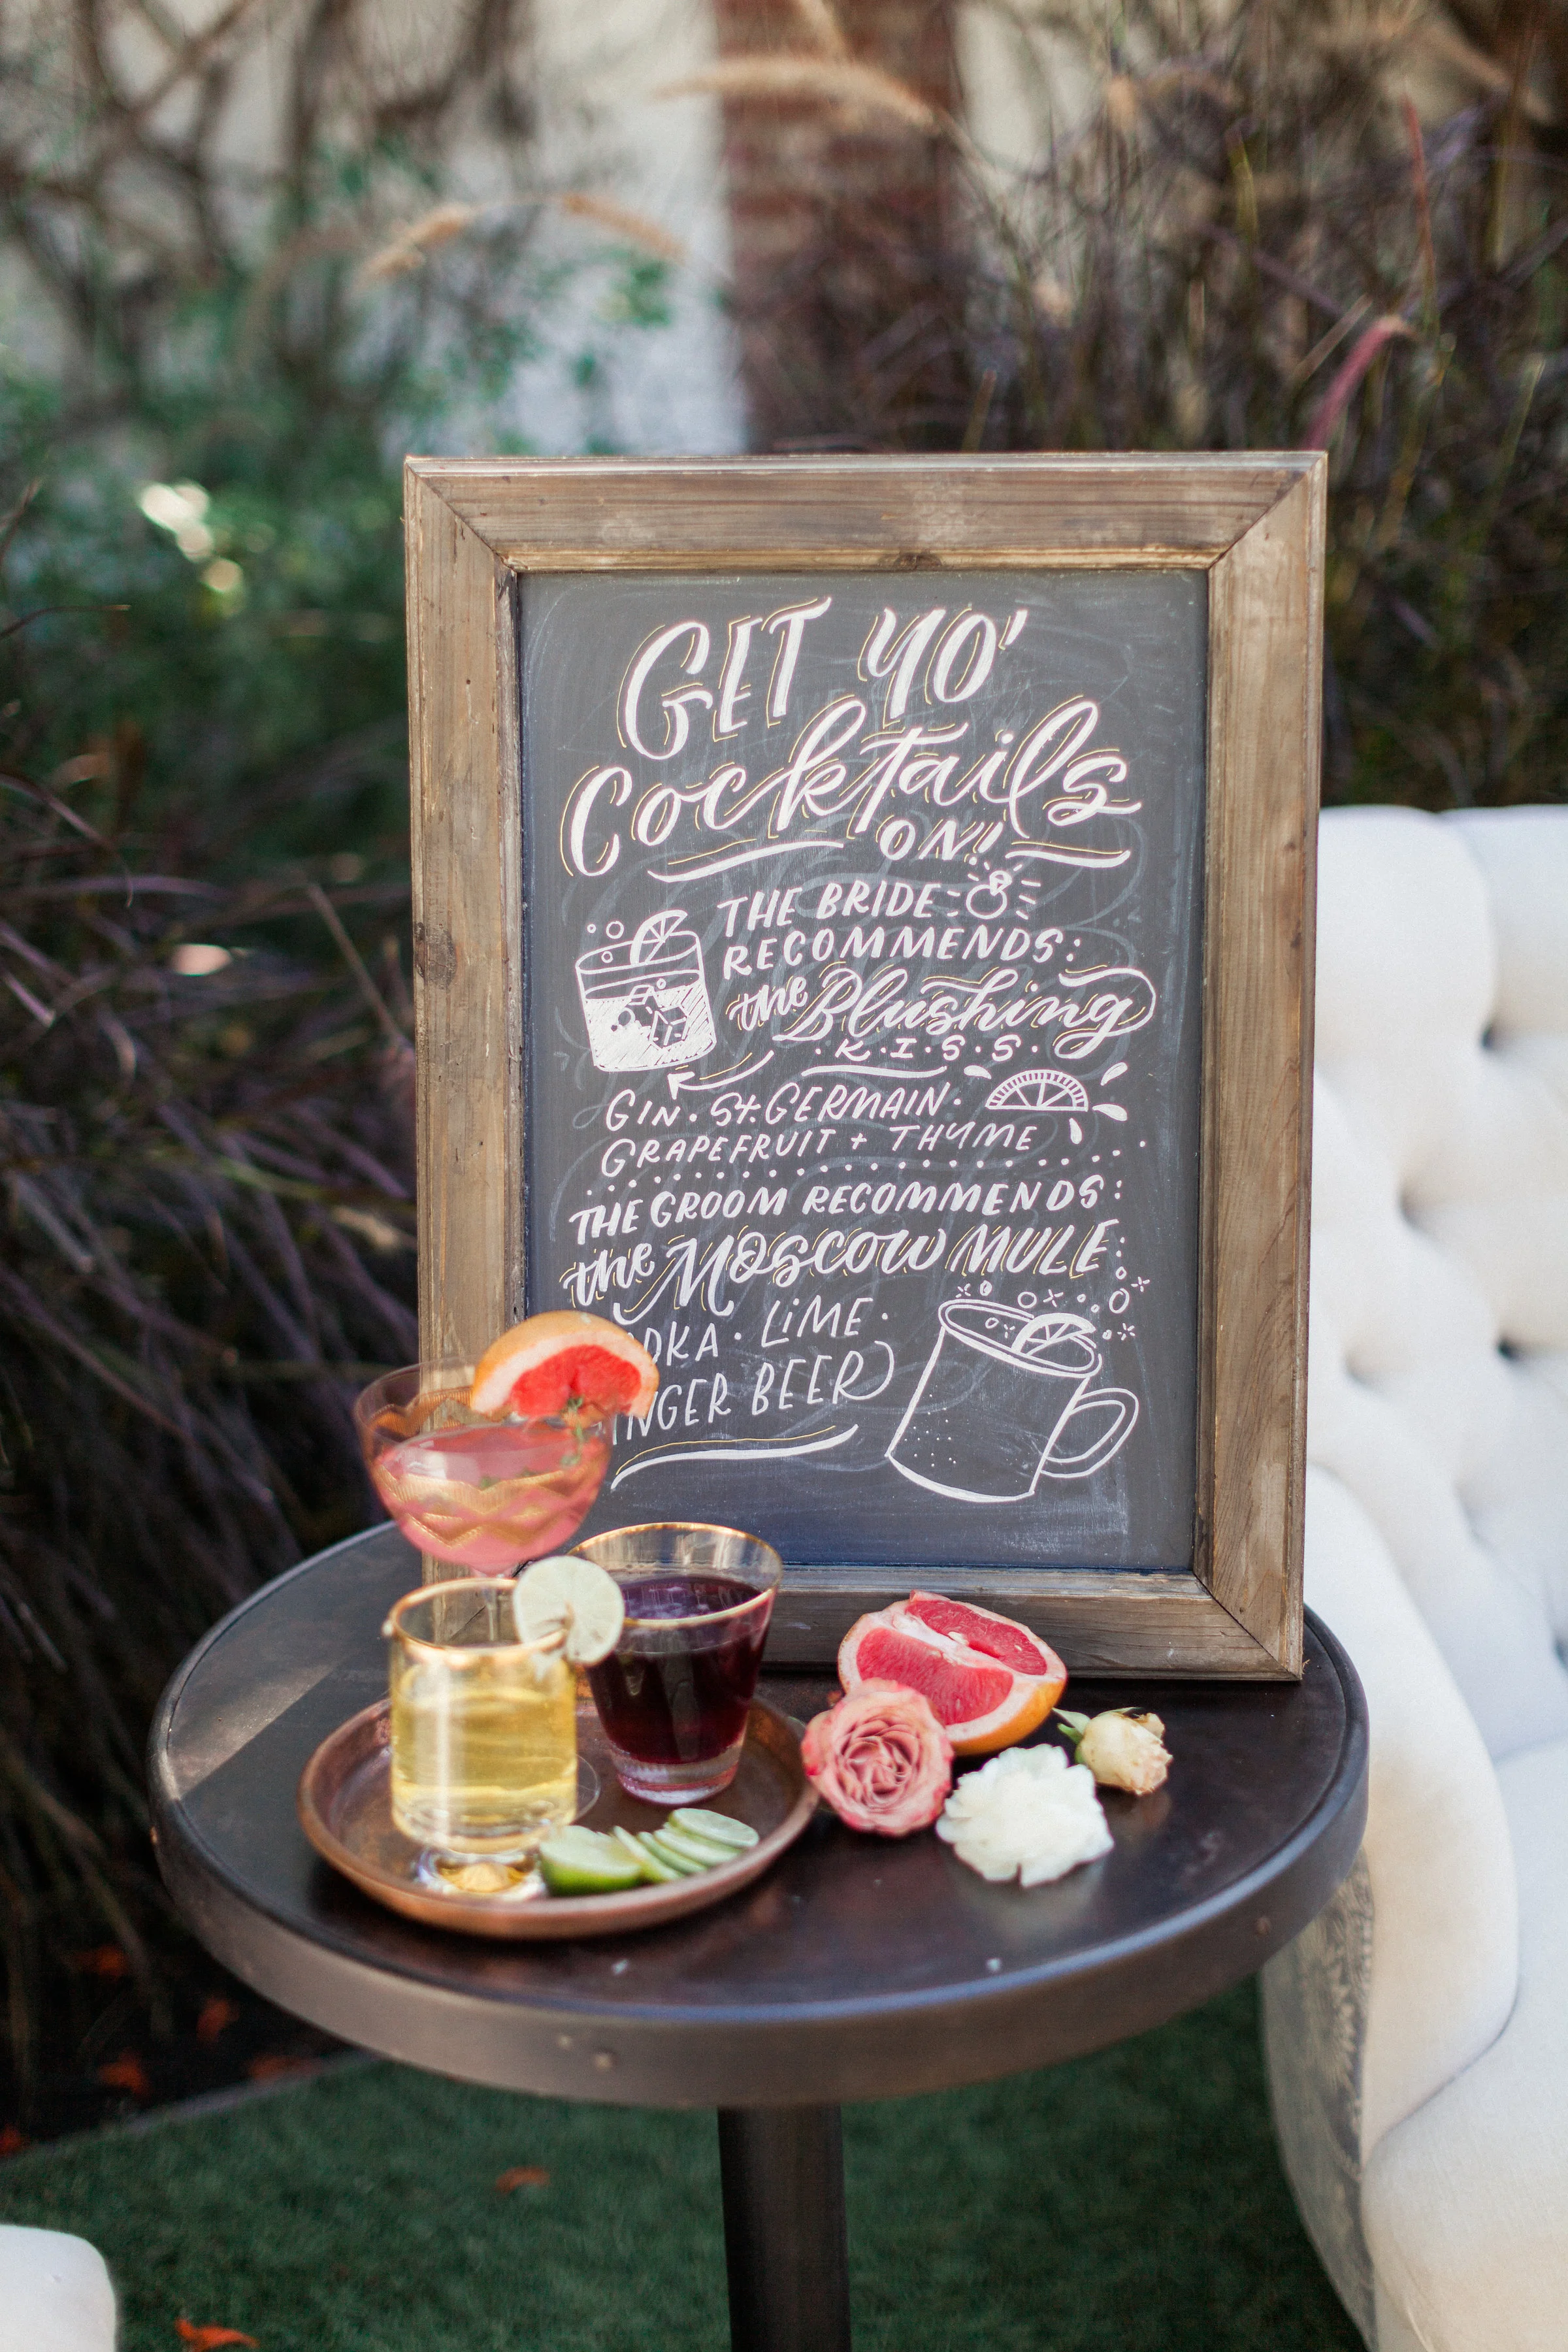 GET YO'
Cocktails
ON!
THE BRIDE
RECOMMENDS:
the Blushing
· K · I · S · S ·
GIN · St. GERMAIN ·
GRAPEFRUIT + THYME
THE GROOM RECOMMENDS:
the Moscow MULE
LiME ·
BEER